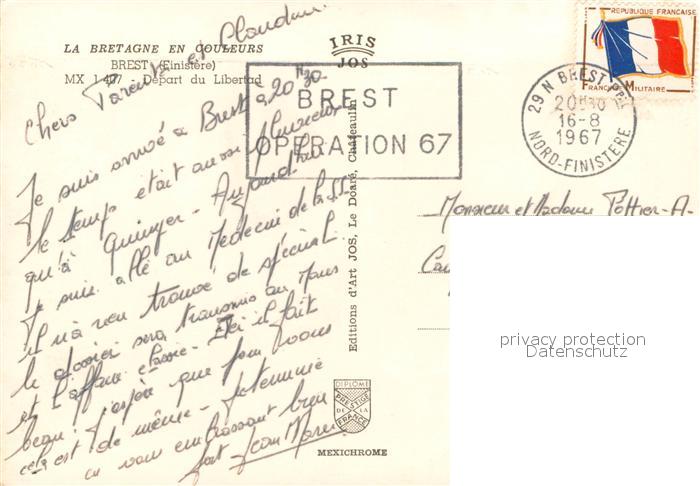 LA BRETAGNE EN COULEURS
BREST (Finistère)
MX 1 477 - Départ du Libertad
IRIS
JOS
BREST
OPERATION 67
REPUBLIQUE FRANCAISE
FRANCHISE MILITAIRE
29 N BREST PPAL
20H30
16-8
1967
NORD-FINISTERE
Chers Parents et Claudine
Je suis arrivé à Brest à 20H30
le temps était aussi pluvieux
qu'à Quimper - Aujourd'hui
je suis allé au Médecin de la
il n'a rien trouvé de spécial
le dossier sera transmis au Mans
et l'affaire classée - Ici il fait
beau j'espère que pour vous
cela est de même - Je termine
en vous embrassant bien
fort Jean Marc
Editions d'Art JOS, Le Doaré, Châteaulin
DIPLOME
PRESTIGE
DE LA
FRANCE
MEXICHROME
Monsieur et Madame Pottier - A -
privacy protection
Datenschutz